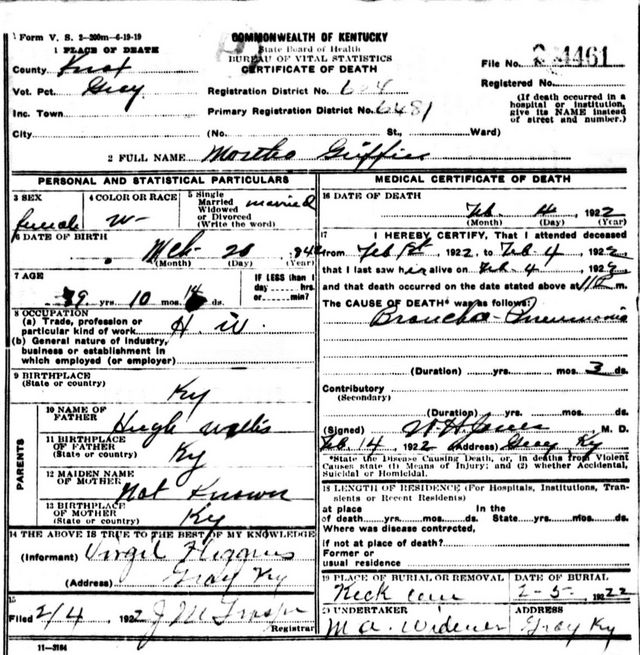 Form V. S. 2-200m-6-19-19
COMMONWEALTH OF KENTUCKY
State Board of Health
BUREAU OF VITAL STATISTICS
CERTIFICATE OF DEATH
File No. 4461
1 PLACE OF DEATH
County Knox
Vot. Pct. Gray
Inc. Town
City
Registration District No.
Primary Registration District No. 6481
Registered No.
(If death occurred in a hospital or institution, give its NAME instead of street and number.)
(No. St., Ward)
2 FULL NAME Martha
PERSONAL AND STATISTICAL PARTICULARS
3 SEX female
4 COLOR OR RACE W
5 Single Married Widowed or Divorced (Write the word) married
6 DATE OF BIRTH Mch 20 1842
(Month) (Day) (Year)
7 AGE 79 yrs. 10 mos. 14 ds.
IF LESS than 1 day hrs. or min?
8 OCCUPATION
(a) Trade, profession or particular kind of work H. W.
(b) General nature of industry, business or establishment in which employed (or employer)
9 BIRTHPLACE (State or country) Ky
PARENTS
10 NAME OF FATHER Hugh
11 BIRTHPLACE OF FATHER (State or country) Ky
12 MAIDEN NAME OF MOTHER Not Known
13 BIRTHPLACE OF MOTHER (State or country) Ky
14 THE ABOVE IS TRUE TO THE BEST OF MY KNOWLEDGE
(Informant) Virgil
(Address) Gray Ky
15
Filed 2/4 1922 J M Registrar
11-3184
MEDICAL CERTIFICATE OF DEATH
16 DATE OF DEATH Feb. 4 1922
(Month) (Day) (Year)
17 I HEREBY CERTIFY, That I attended deceased
from Feb 1st 1922 to Feb 4 1922
that I last saw her alive on Feb 4 1922
and that death occurred on the date stated above at m
The CAUSE OF DEATH* was as follows:
Broncho-Pneumonia
(Duration) yrs. mos. 3 ds.
Contributory
(Secondary)
(Duration) yrs. mos. ds.
(Signed) W H M. D.
Feb. 14 1922 (Address) Gray Ky
*State the Disease Causing Death, or, in deaths from Violent Causes state (1) Means of Injury; and (2) whether Accidental, Suicidal or Homicidal.
18 LENGTH OF RESIDENCE (For Hospitals, Institutions, Transients or Recent Residents)
at place of death yrs. mos. ds. In the State yrs. mos. ds.
Where was disease contracted,
if not at place of death?
Former or usual residence
19 PLACE OF BURIAL OR REMOVAL
DATE OF BURIAL 2-5- 1922
20 UNDERTAKER M A. Widener
ADDRESS Gray Ky